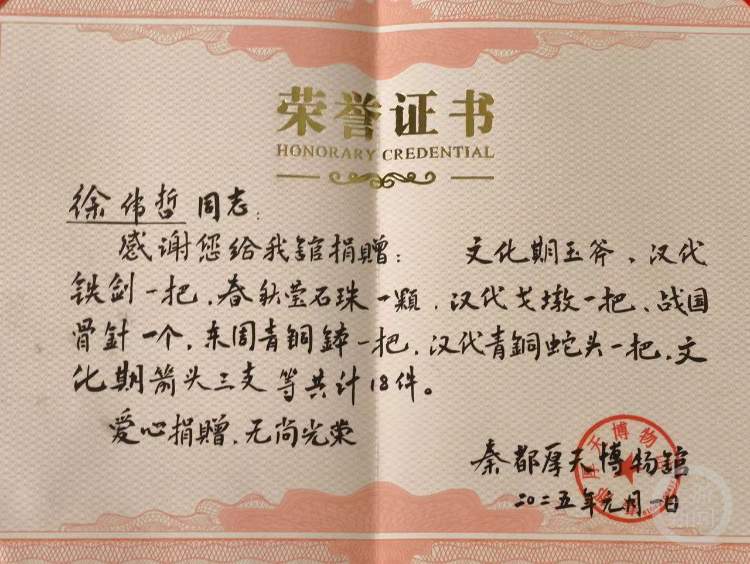 荣誉证书
HONORARY CREDENTIAL
徐伟哲 同志：
感谢您给我舘捐赠： 文化期玉斧、汉代
铁剑一把、春秋莹石珠一顆、汉代戈墩一把、战国
骨針一个、东周青铜鉢一把、汉代青銅蛇头一把、文
化期箭头三支等共计18件。
爱心捐赠、无尚光荣
秦都厚天博物舘
二〇二五年元月一日
厚天博物